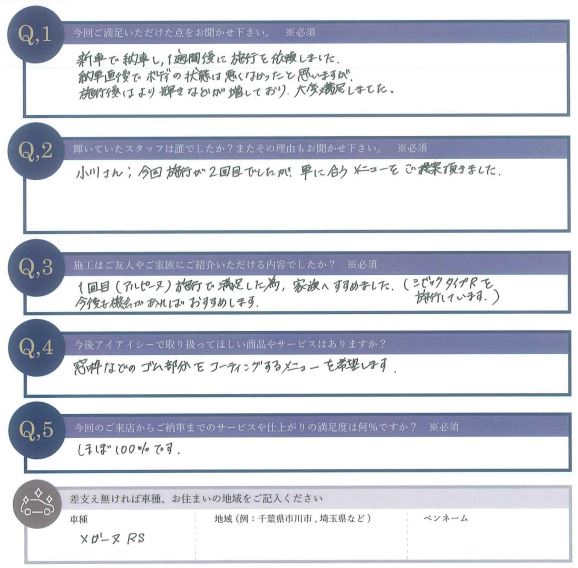 Q,1 今回ご満足いただけた点をお聞かせ下さい。 ※必須
新車で納車し、1週間後に施行を依頼しました.
納車直後でボディの状態は悪くなかったと思いますが、
施行後はより輝きなどが増しており、大変満足しました。
Q,2 輝いていたスタッフは誰でしたか？またその理由もお聞かせ下さい。 ※必須
小川さん；今回施行が2回目でしたが、車に合うメニューをご提案頂きました.
Q,3 施工はご友人やご家族にご紹介いただける内容でしたか？ ※必須
1回目(アルピーヌ)施行で満足した為, 家族へすすめました. (シビックタイプRを
今後も機会があればおすすめします. 施行しています.)
Q,4 今後アイアイシーで取り扱ってほしい商品やサービスはありますか？
窓枠などのゴム部分をコーティングするメニューを希望します.
Q,5 今回のご来店からご納車までのサービスや仕上がりの満足度は何％ですか？ ※必須
ほぼ100%です.
差支え無ければ車種、お住まいの地域をご記入ください
車種 地域 (例：千葉県市川市 , 埼玉県など) ペンネーム
メガーヌ RS